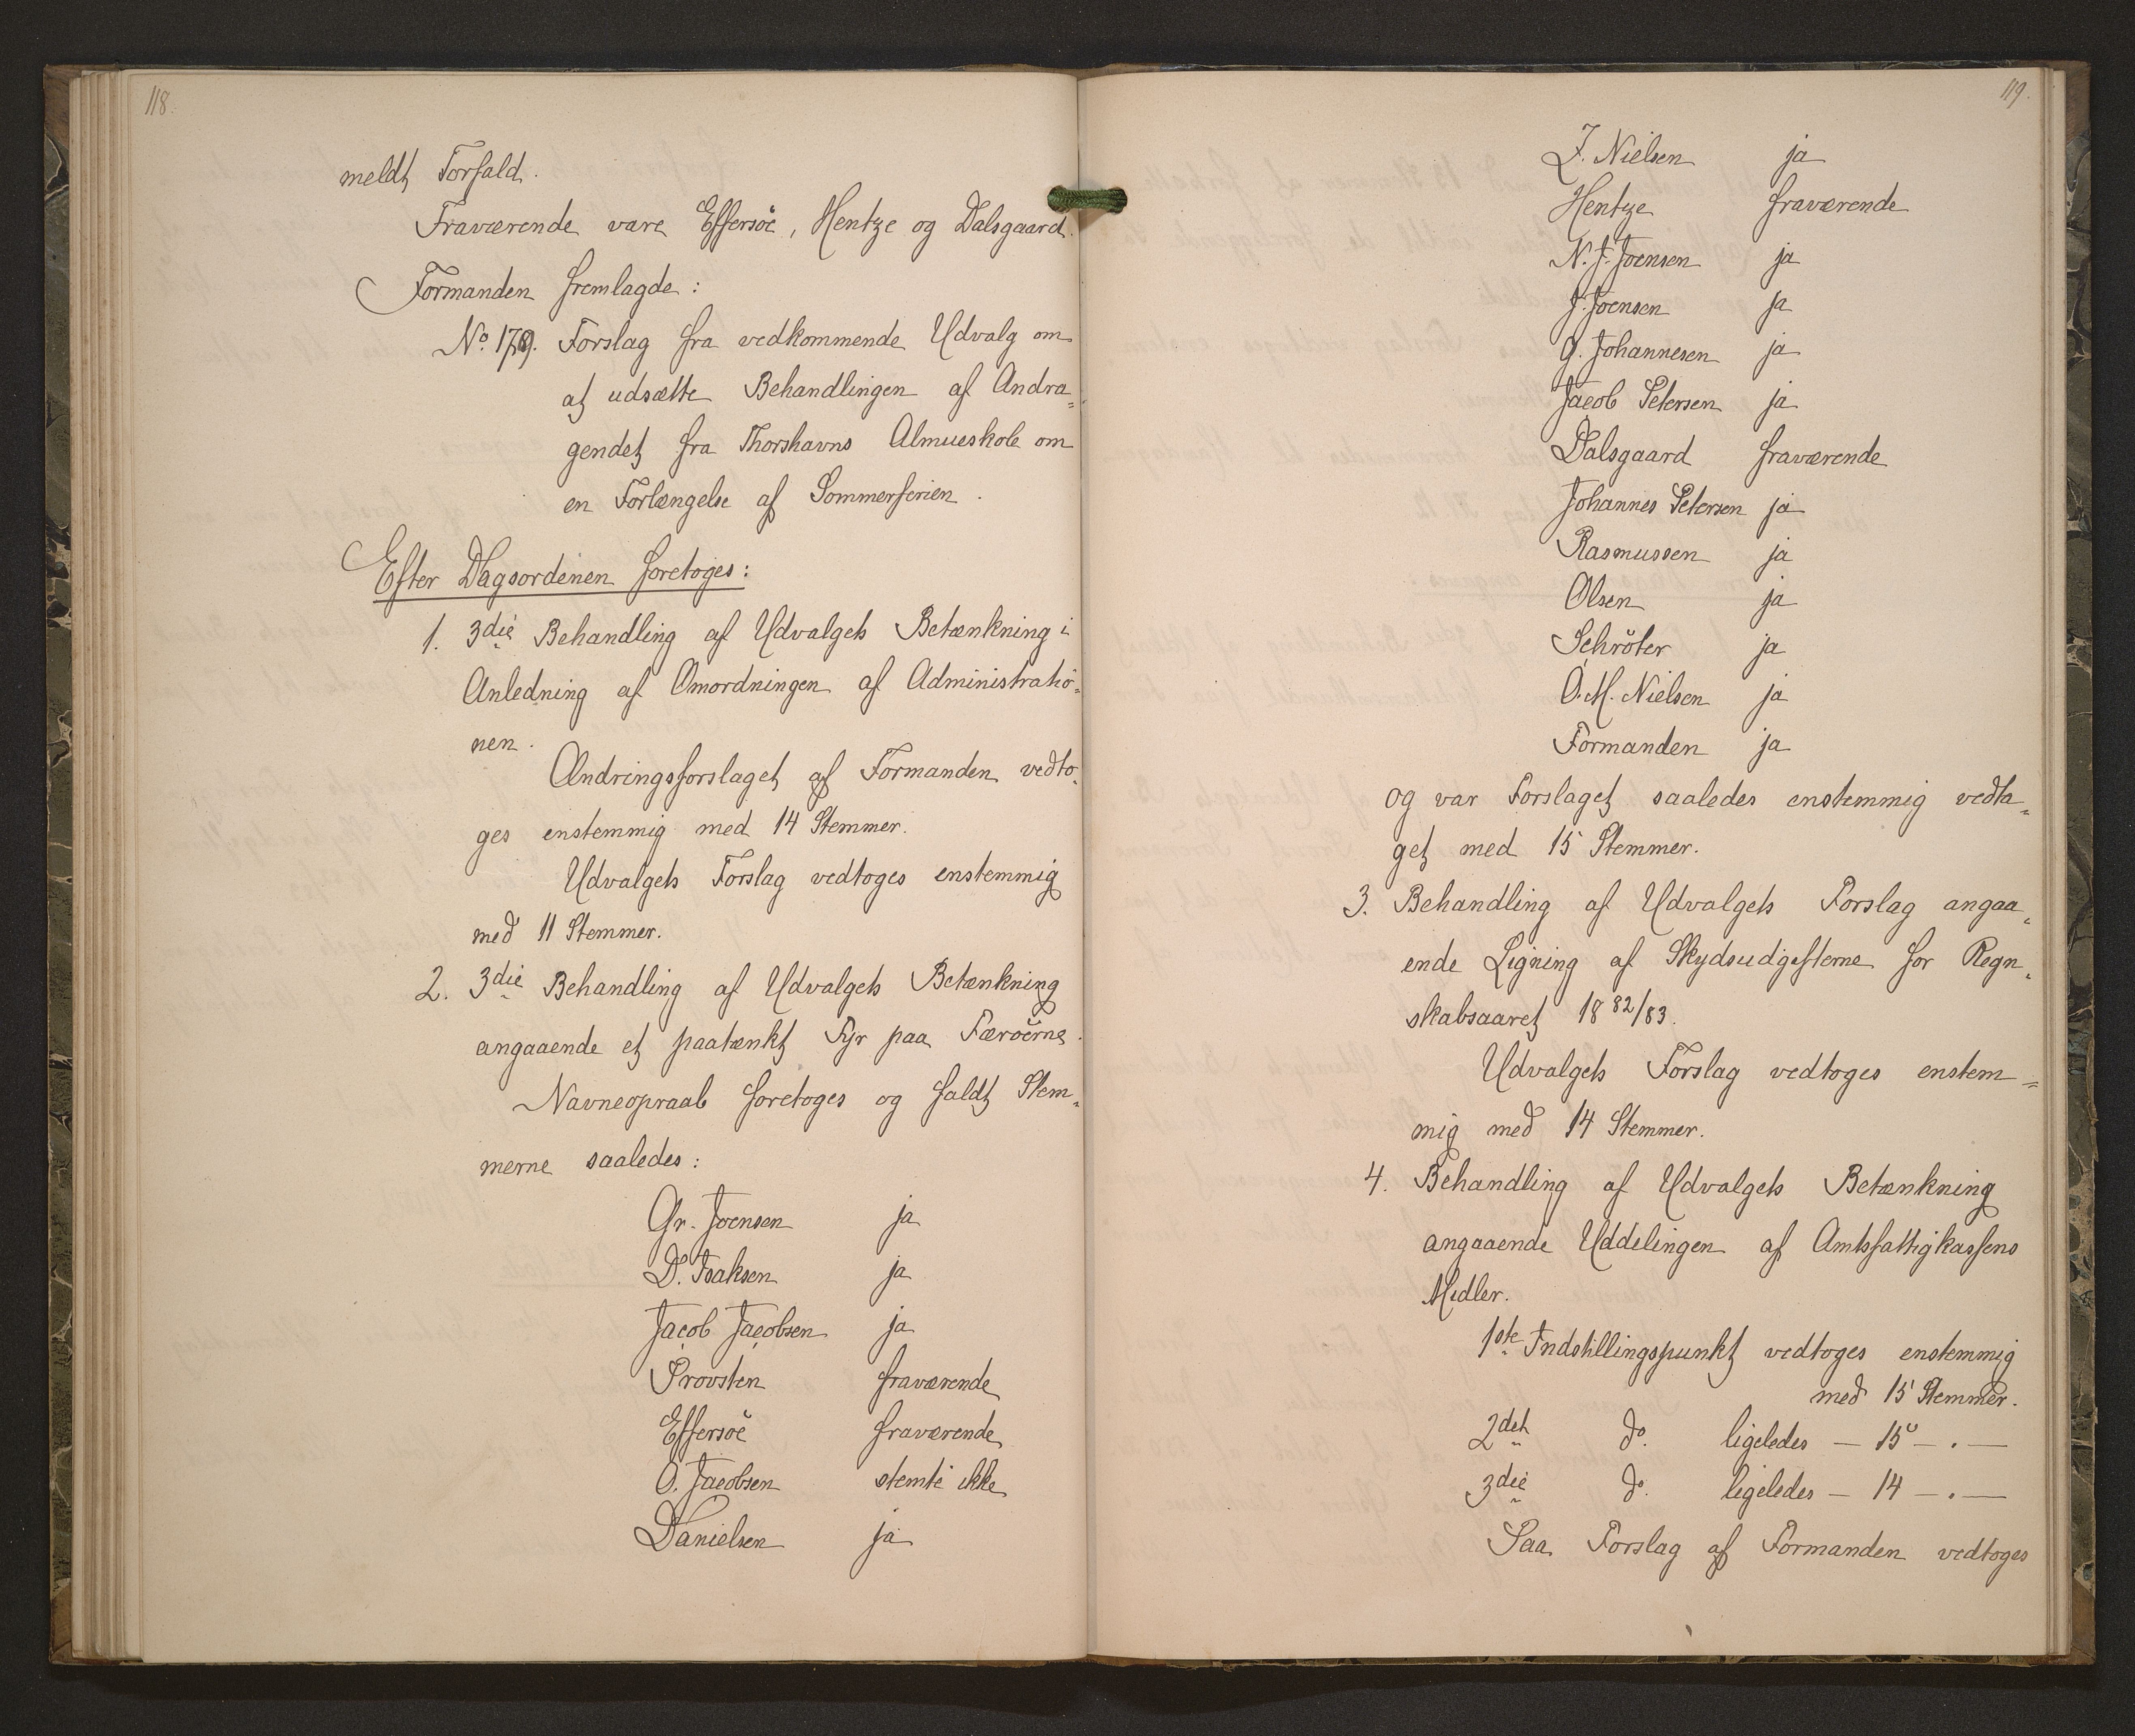 118.
meldt Forfald.
Fraværende vare Effersöe, Hentze og Dalsgaard.
Formanden fremlagde:
No. 179. Forslag fra vedkommende Udvalg om
at udsætte Behandlingen af Andra=
gendet fra Thorshavns Almueskole om
en Forlængelse af Sommerferien.
Efter Dagsordenen foretoges:
1. 3die Behandling af Udvalgets Betænkning i
Anledning af Omordningen af Administratio=
nen.
Ændringsforslaget af Formanden vedto=
ges enstemmig med 14 Stemmer.
Udvalgets Forslag vedtoges enstemmig
med 11 Stemmer.
2. 3die Behandling af Udvalgets Betænkning
angaaende et paatænkt Fyr paa Færöerne.
Navneopraab foretoges og faldt Stem=
merne saaledes:
Gr. Joensen ja
D. Isaksen ja
Jacob Jacobsen ja
Provsten fraværende
Effersöe fraværende
O. Jacobsen stemte ikke
Danielsen ja
119.
Z. Nielsen ja
Hentze fraværende
N. J. Joensen ja
J. Joensen ja
G. Johannesen ja
Jacob Petersen ja
Dalsgaard fraværende
Johannes Petersen ja
Rasmussen ja
Olsen ja
Schröter ja
O. M. Nielsen ja
Formanden ja
og var Forslaget saaledes enstemmig vedta=
get med 15 Stemmer.
3. Behandling af Udvalgets Forslag angaa=
ende Ligning af Skydsudgifterne for Regn=
skabsaaret 1882/83.
Udvalgets Forslag vedtoges enstem=
mig med 14 Stemmer.
4. Behandling af Udvalgets Betænkning
angaaende Uddelingen af Amtsfattigkassens
Midler.
1ste Indstillingspunkt vedtoges enstemmig
med 15 Stemmer.
2det do. ligeledes — 15 — . —
3die do. ligeledes — 14 — . —
Paa Forslag af Formanden vedtoges